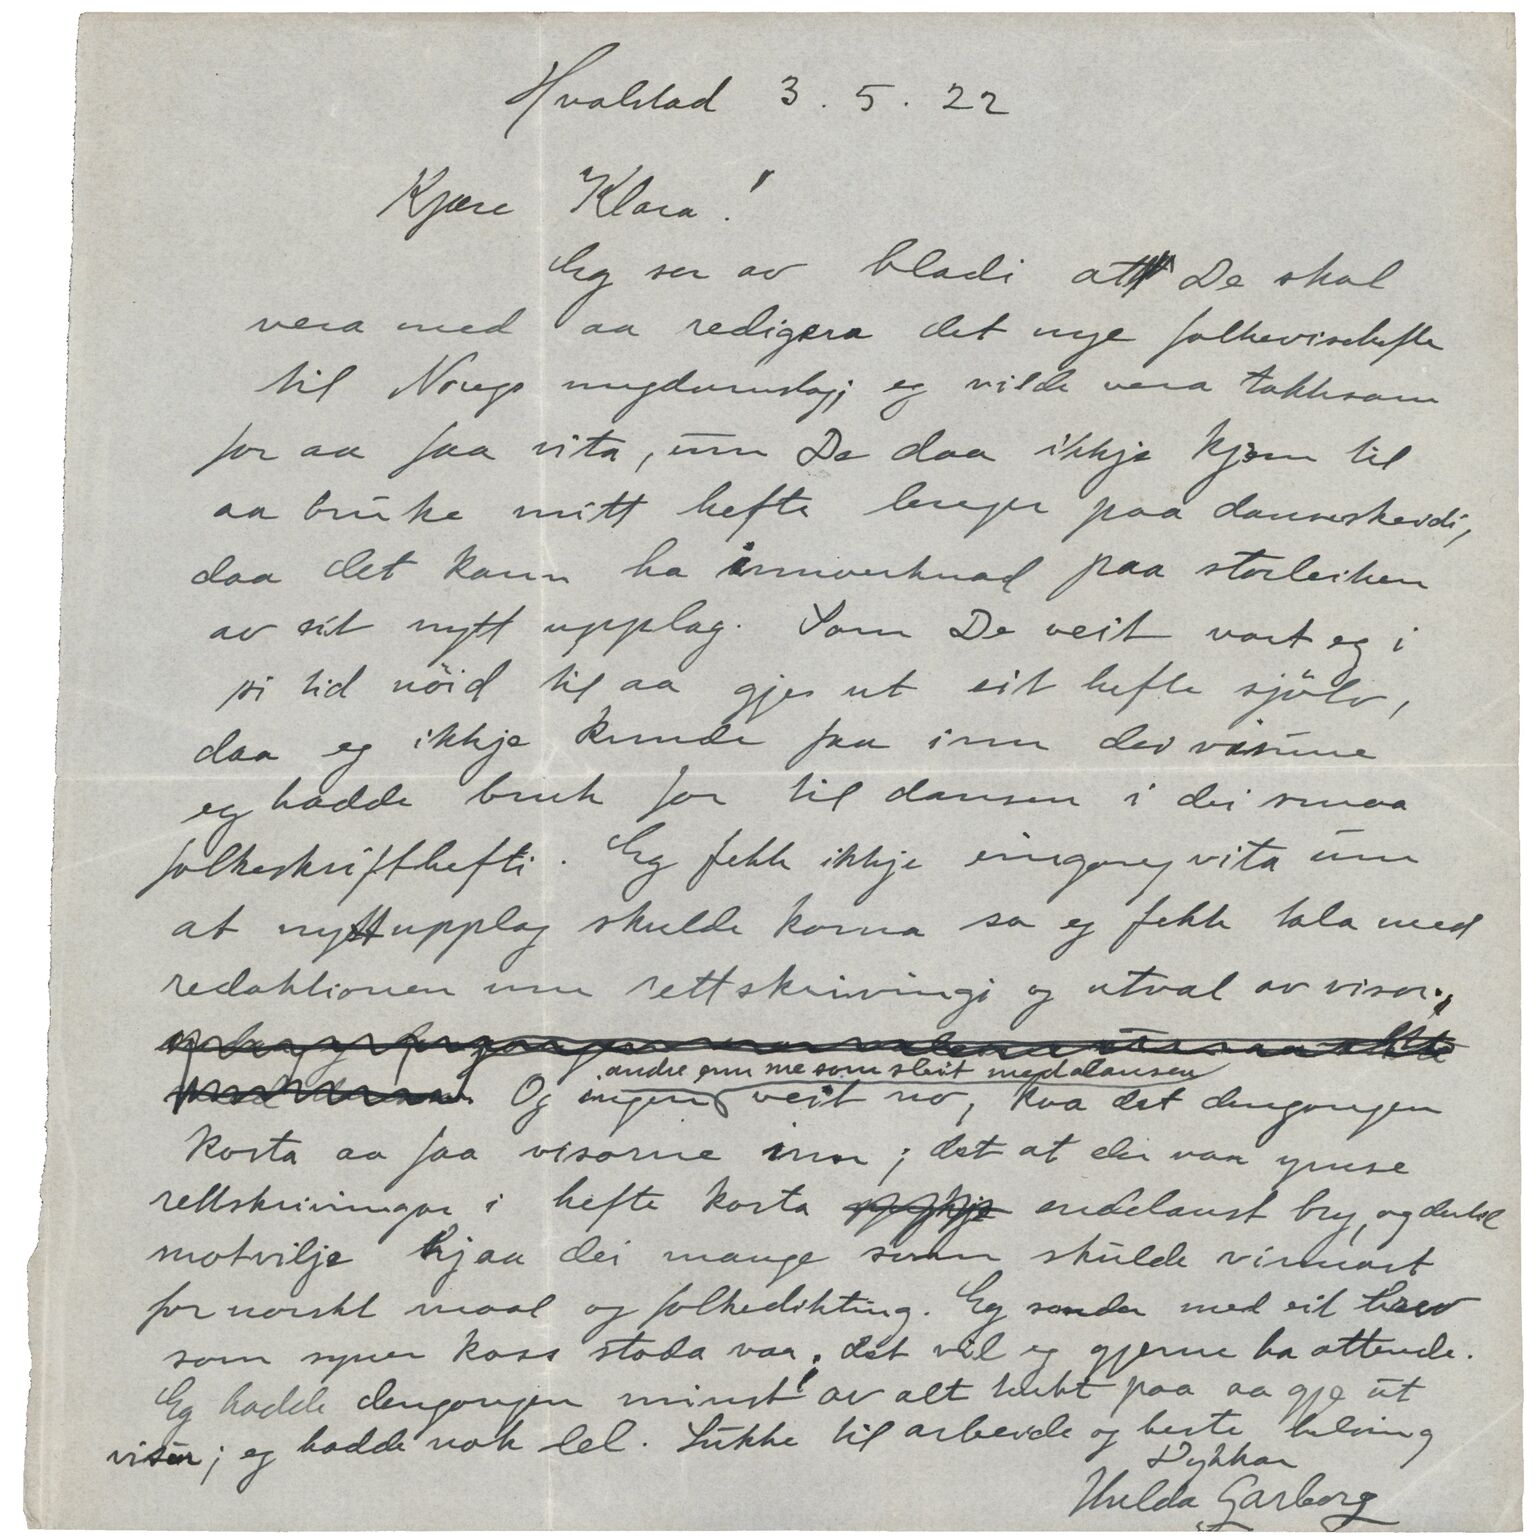 Hvalstad 3. 5. 22
Kjære Klara!
Eg ser av bladi at De skal
vera med aa redigera det nye folkevisehefte
til Noregs ungdomslag; eg vilde vera takksam
for aa faa vita, um De daa ikkje kjem til
aa bruke mitt hefte lenger paa danseskeidi,
daa det kann ha innverknad paa storleiken
av eit nytt upplag. Som De veit vart eg i
si tid nöid til aa gje ut eit hefte sjölv,
daa eg ikkje kunde faa inn dei visune
eg hadde bruk for til dansen i dei smaa
folkeskrifthefti. Eg fekk ikkje eingong vita um
at nytt upplag skulde koma so eg fekk tala med
redaktionen um rettskrivingi og utval av visor.
andre enn me som sleit med dansen
Og ingen veit no, kva det dengongen
kosta aa faa visorne inn; det at dei var ymse
rettskrivingar i hefte kosta endelaust bry, og dertil
motvilje hjaa dei mange som skulde vinnast
for norskt maal og folkedikting. Eg sender med eit brev
som syner koss stoda var; det vil eg gjerne ha attende.
Eg hadde dengongen minst av alt tenkt paa aa gje ut
visur; eg hadde nok lel. Lukke til arbeide og beste helsing
Dykkar
Hulda Garborg